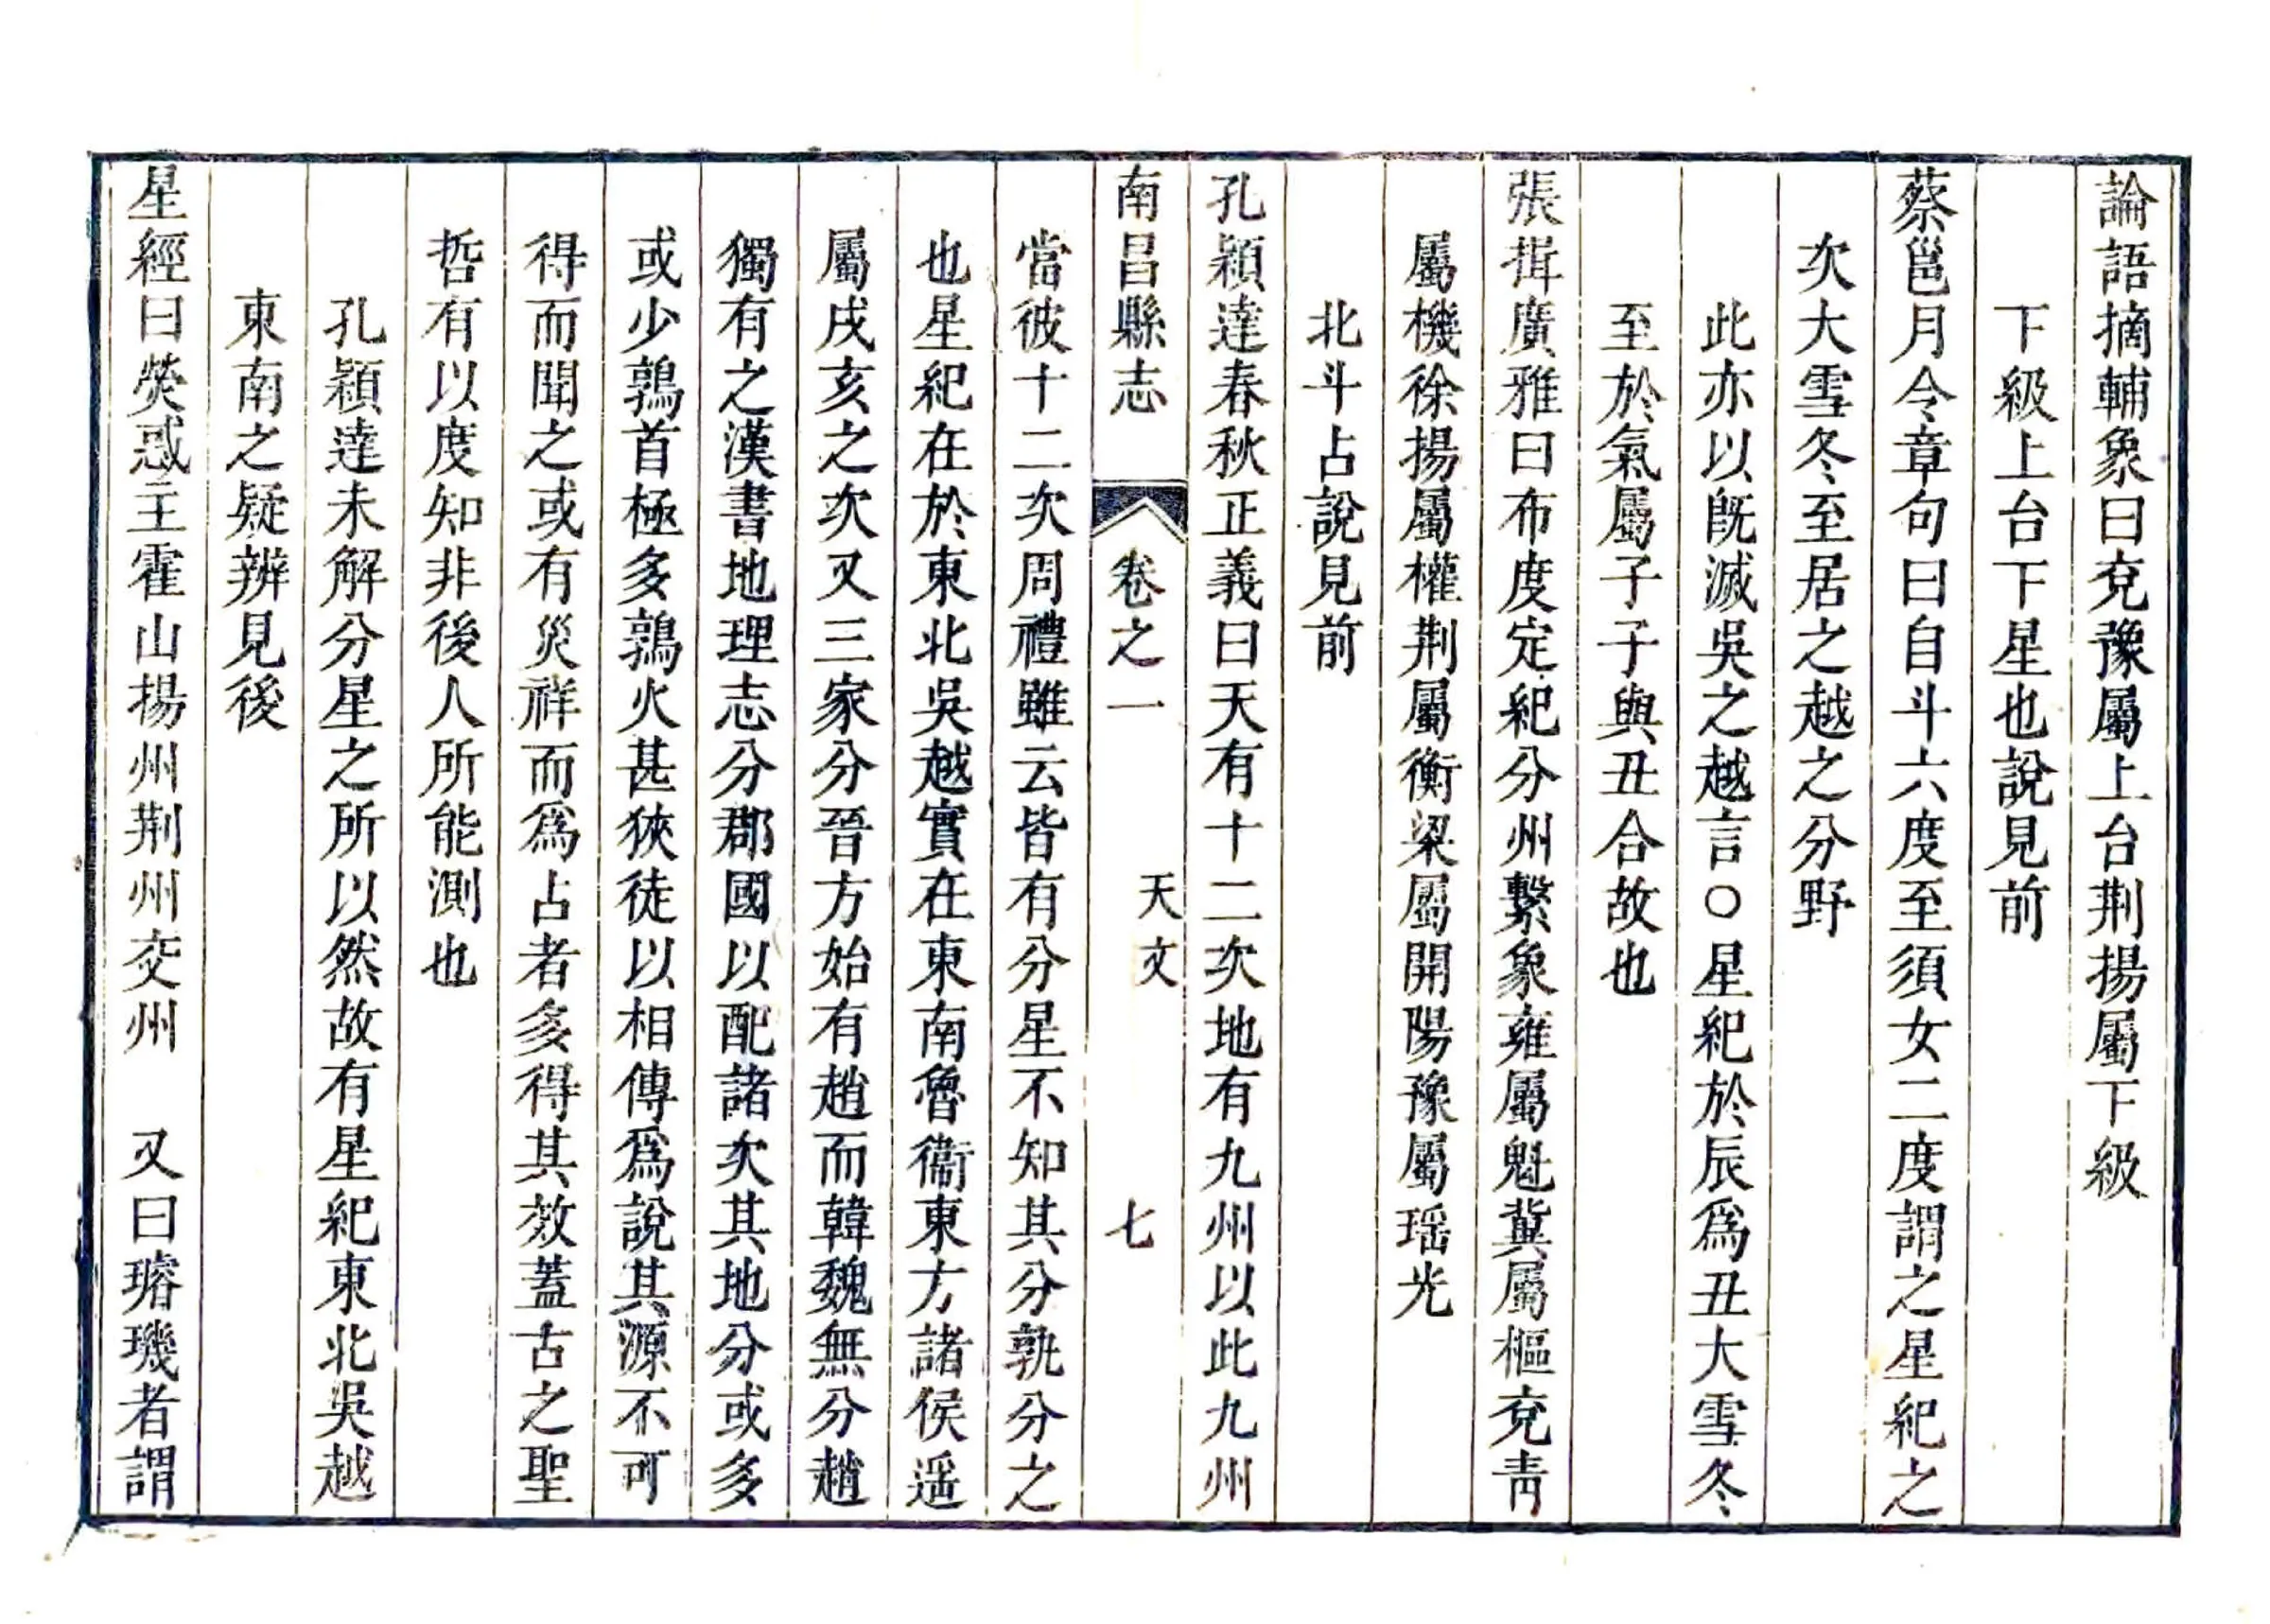 論語摘輔象曰兗豫屬上台荆揚屬下級
下級上台下星也說見前
蔡邕月令章句曰自斗六度至須女二度謂之星紀之
次大雪冬至居之越之分野
此亦以旣滅吳之越言○星紀於辰爲丑大雪冬
至於氣屬子子與丑合故也
張揖廣雅曰布度定紀分州繫象雍屬魁冀屬樞兗靑
屬機徐揚屬權荆屬衡梁屬開陽豫屬瑶光
北斗占說見前
孔穎達春秋正義曰天有十二次地有九州以此九州
南昌縣志 卷之一 天文 七
當彼十二次周禮雖云皆有分星不知其分孰分之
也星紀在於東北吳越實在東南魯衞東方諸侯遥
屬戌亥之次又三家分晉方始有趙而韓魏無分趙
獨有之漢書地理志分郡國以配諸次其地分或多
或少鶉首極多鶉火甚狹徒以相傳爲說其源不可
得而聞之或有災祥而爲占者多得其效蓋古之聖
哲有以度知非後人所能測也
孔穎達未解分星之所以然故有星紀東北吳越
東南之疑辨見後
星經曰熒惑主霍山揚州荆州交州 又曰璿璣者謂